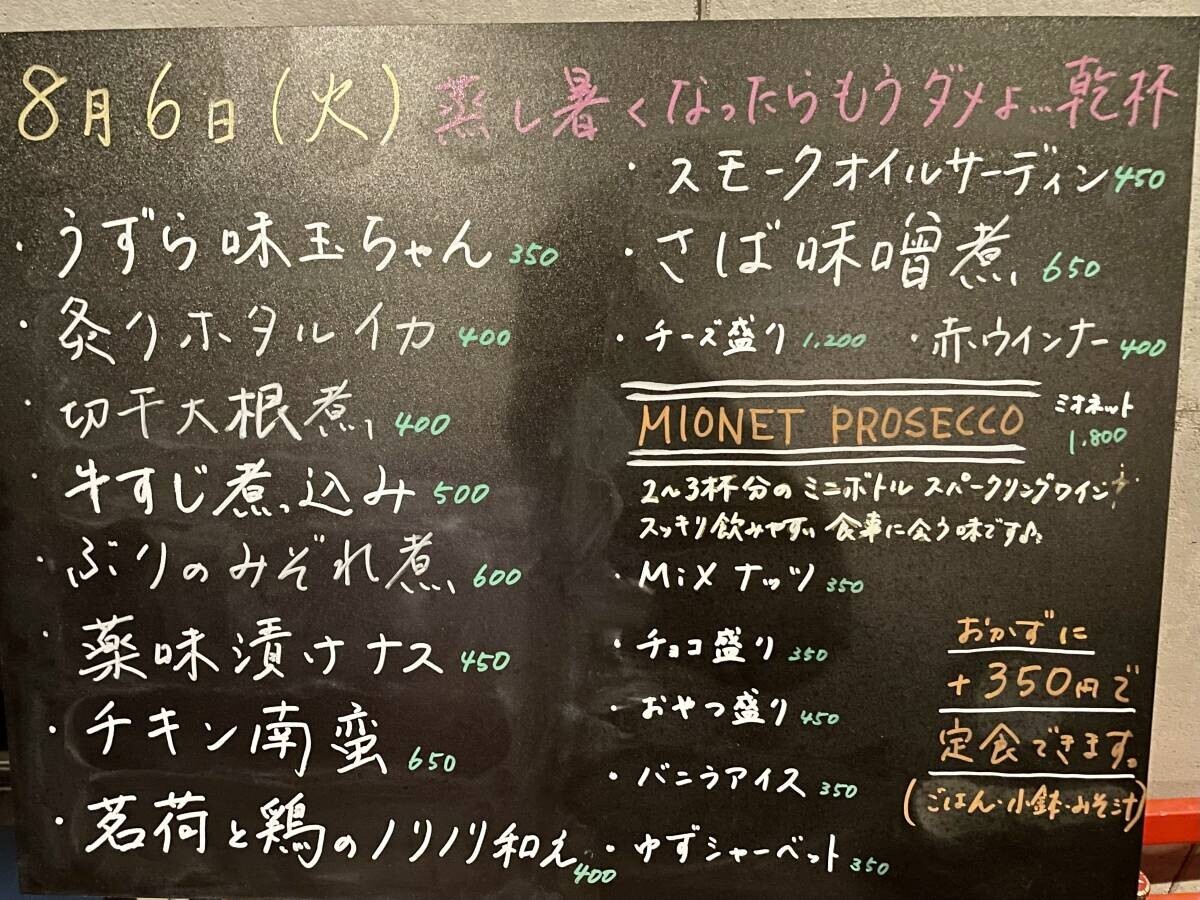 8月6日(火) 蒸し暑くなったらもうダメよ…乾杯
・うずら味玉ちゃん 350
・炙りホタルイカ 400
・切干大根煮 400
・牛すじ煮込み 500
・ぶりのみぞれ煮 600
・薬味漬けナス 450
・チキン南蛮 650
・茗荷と鶏のノリノリ和え 400
・スモークオイルサーディン 450
・さば味噌煮 650
・チーズ盛り 1,200 ・赤ウインナー 400
MIONET PROSECCO ミオネット 1,800
2〜3杯分のミニボトル スパークリングワイン
スッキリ飲みやすい 食事に会う味です♪
・MiXナッツ 350
・チョコ盛り 350
・おやつ盛り 450
・バニラアイス 350
・ゆずシャーベット 350
おかずに
+350円で
定食できます。
(ごはん・小鉢・みそ汁)